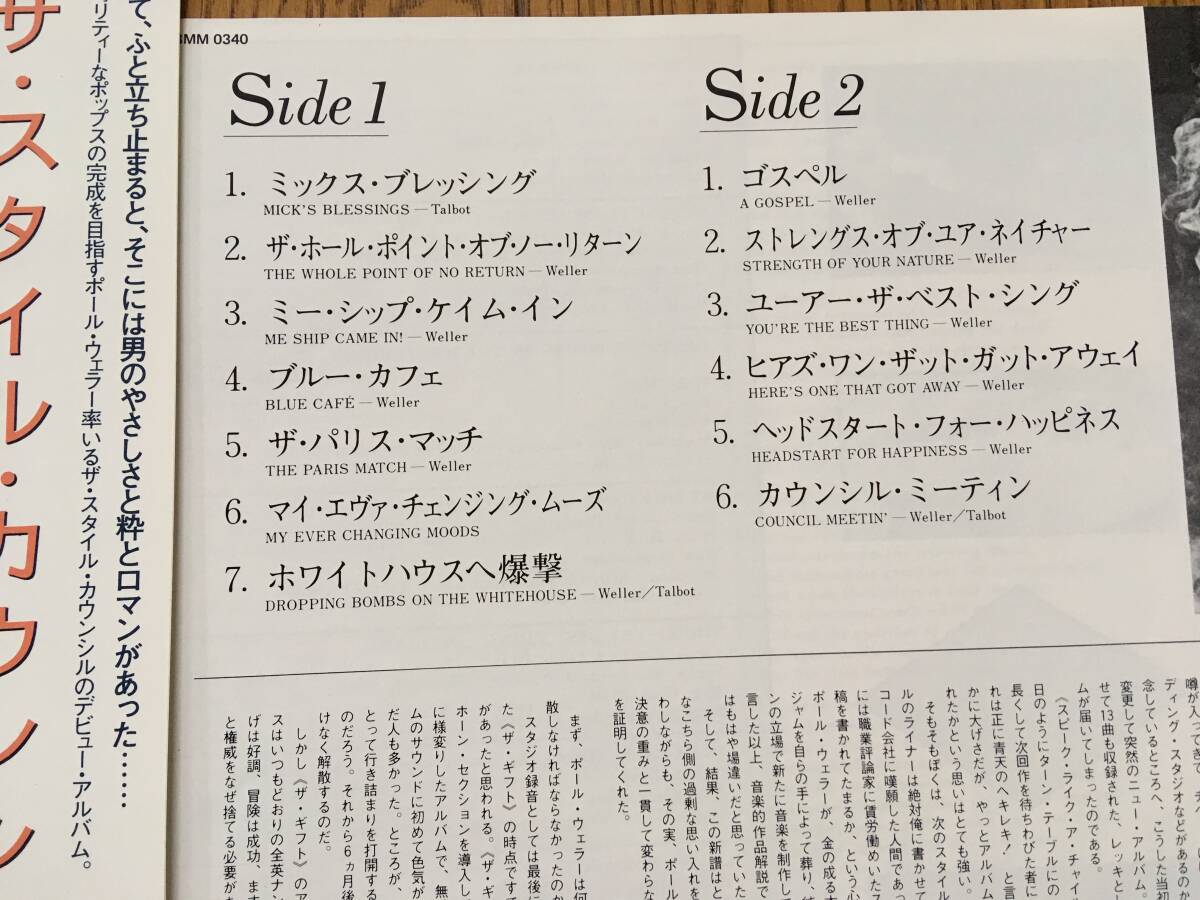 ザ・スタイル・カウンシ
て、ふと立ち止まると、そこには男のやさしさと粋とロマンがあった……
リティーなポップスの完成を目指すポール・ウェラー率いるザ・スタイル・カウンシルのデビュー・アルバム。
MM 0340
Side 1
1. ミックス・ブレッシング
MICK'S BLESSINGS — Talbot
2. ザ・ホール・ポイント・オブ・ノー・リターン
THE WHOLE POINT OF NO RETURN — Weller
3. ミー・シップ・ケイム・イン
ME SHIP CAME IN! — Weller
4. ブルー・カフェ
BLUE CAFÉ — Weller
5. ザ・パリス・マッチ
THE PARIS MATCH — Weller
6. マイ・エヴァ・チェンジング・ムーズ
MY EVER CHANGING MOODS
7. ホワイトハウスへ爆撃
DROPPING BOMBS ON THE WHITEHOUSE — Weller/Talbot
Side 2
1. ゴスペル
A GOSPEL — Weller
2. ストレングス・オブ・ユア・ネイチャー
STRENGTH OF YOUR NATURE — Weller
3. ユーアー・ザ・ベスト・シング
YOU'RE THE BEST THING — Weller
4. ヒアズ・ワン・ザット・ガット・アウェイ
HERE'S ONE THAT GOT AWAY — Weller
5. ヘッドスタート・フォー・ハッピネス
HEADSTART FOR HAPPINESS — Weller
6. カウンシル・ミーティン
COUNCIL MEETIN' — Weller/Talbot
ディング・スタジオなどがあるのか
念しているところへ、こうした当初
変更して突然のニュー・アルバム。
せて13曲も収録された、レッキと
ムが届いてしまったのである。
《スピーク・ライク・ア・チャイル
日のようにターン・テーブルにの
長くして次回作を待ちわびた者に
れは正に青天のヘキレキ！と言
に大げさだが、やっとアルバム
れたかという思いはとても強い。
そもそもぼくは、次のスタイル
ルのライナーは絶対俺に書かせて
コード会社に嘆願した人間であっ
には職業評論家に賃労働めいたス
稿を書かれてたまるか、という心
ポール・ウェラーが、金の成る木
ジャムを自らの手によって葬り、
ンの立場で新たに音楽を制作して
言した以上、音楽的作品解説で
はもはや場違いだと思っていた
そして、結果、この新譜はと
なこちら側の過剰な思い入れを
わしながらも、その実、ポール
決意の重みと一貫して変わらな
を証明してくれた。
まず、ポール・ウェラーは何
散しなければならなかったのか
スタジオ録音としては最後に
た《ザ・ギフト》の時点ですで
があったと思われる。《ザ・ギ
ホーン・セクションを導入し
に様変りしたアルバムで、無
ムのサウンドに初めて色気が
だ人も多かった。ところが、
とって行き詰まりを打開する
のだろう。それから6ヵ月後
けなく解散するのだ。
しかし《ザ・ギフト》のア
スはいつもどおりの全英ナン
げは好調、冒険は成功、ます
と権威をなぜ捨てる必要が